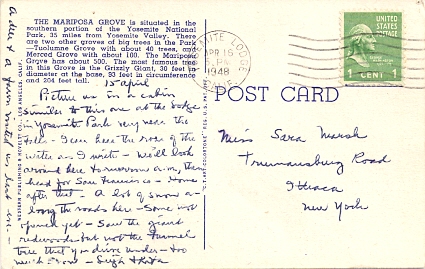 THE MARIPOSA GROVE is situated in the
southern portion of the Yosemite National
Park, 35 miles from Yosemite Valley. There
are two other groves of big trees in the Park
—Tuolumne Grove with about 40 trees, and
Merced Grove with about 100. The Mariposa
Grove has about 500. The most famous tree
in this Grove is the Grizzly Giant, 30 feet in
diameter at the base, 93 feet in circumference
and 204 feet tall.
15 April
Picture us in a cabin
similar to this one at the lodge
in Yosemite Park very near the
falls - I can hear the roar of the
water as I write - We'll look
around here tomorrow a.m., then
head for San Francisco - Home
after that. A lot of snow a-
long the roads here - Some not
opened yet - Saw the giant
redwoods but not the tunnel
tree that you drive under - too
much snow -
A deer & a fawn visited us last eve -
LODGE
APR 16
PM
1948
UNITED
STATES
POSTAGE
1 CENT 1
POST CARD
Miss Sara Marsh
Trumansburg Road
Ithaca
New York